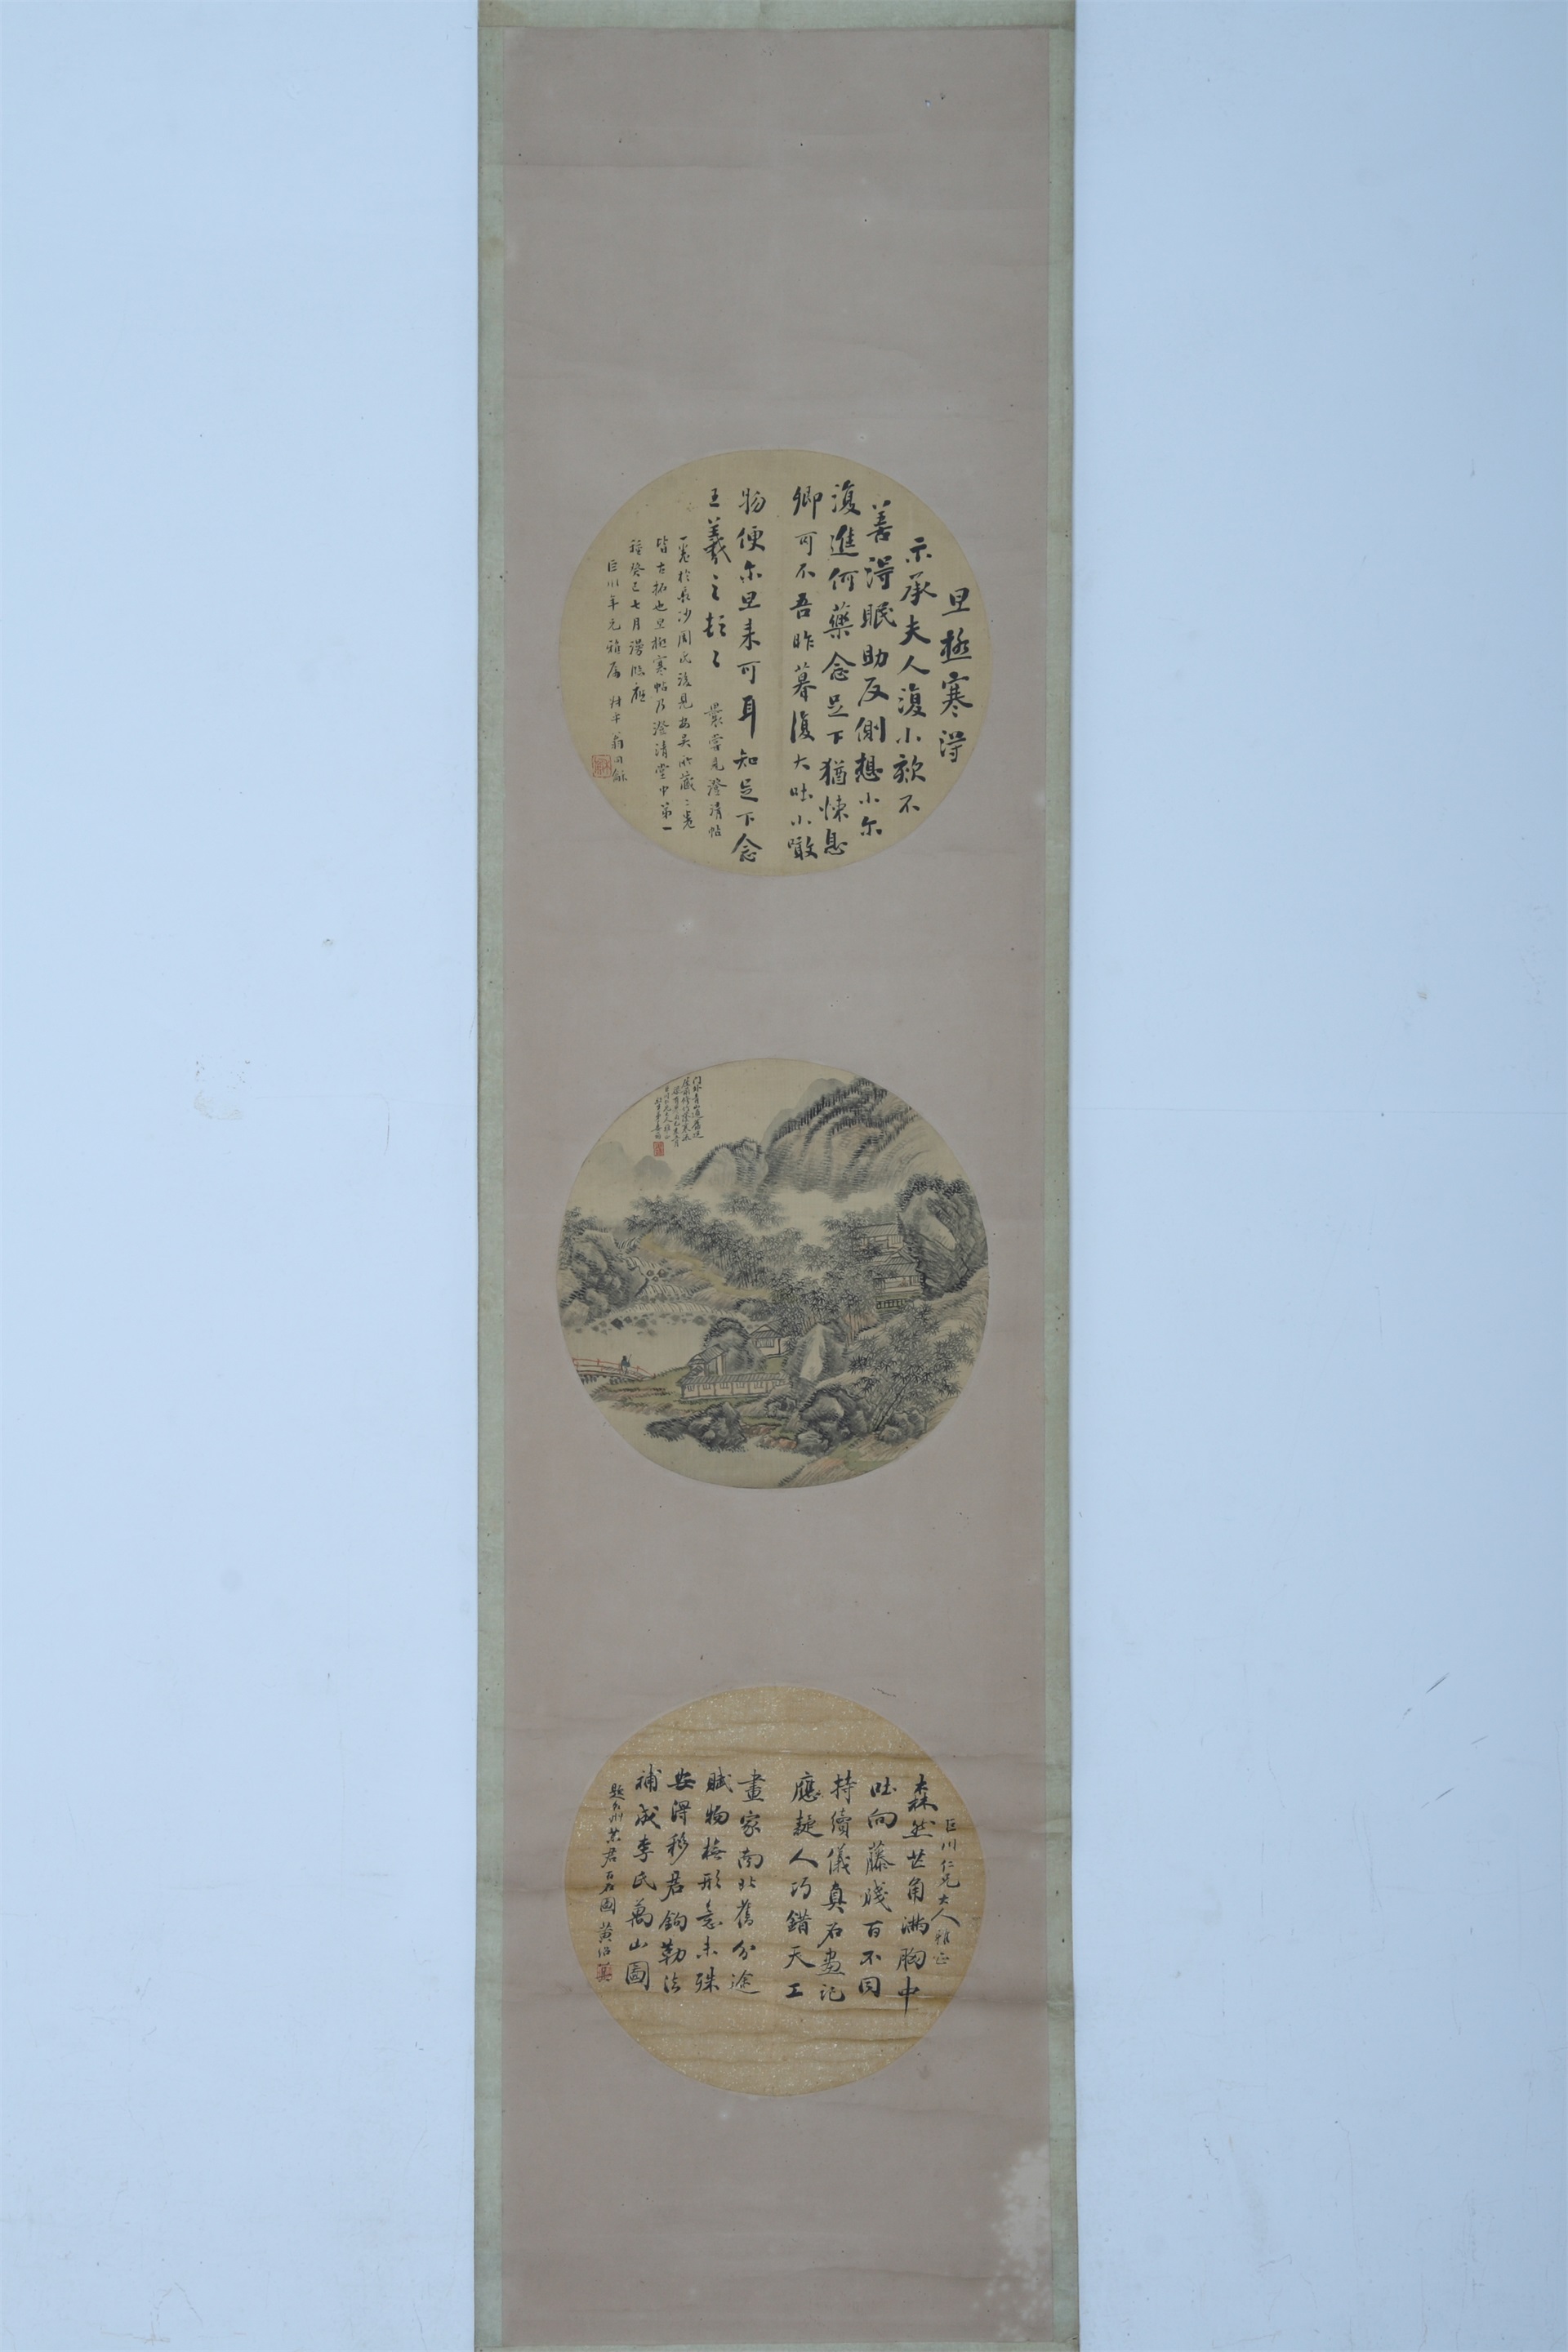 旦極寒得
示承夫人復小欬不
善得眠助反側想小尔
復進何藥念足下猶悚息
卿可不吾昨暮復大吐小噉
物便尔旦来可耳知足下念
王羲之頓〻
曩嘗見澄清帖
一卷於長沙周氏後見安吳所藏二卷
皆古拓也旦極寒帖乃澄清堂中第一
種癸巳七月漫臨應
巨川年兄雅屬 尗平翁同龢
巨川仁兄大人雅正
森然芒角滿胸中
吐向藤牋百不同
持續儀真石畫記
應疑人巧錯天工
畫家南北舊分途
賦物極形意未殊
安得移君鉤勒法
補成李氏萬山圖
黃紹箕